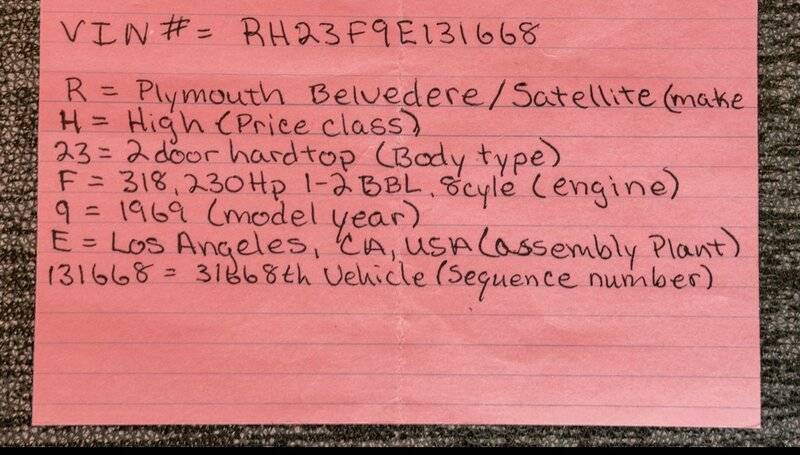 VIN #= RH23F9E131668
R = Plymouth Belvedere/Satellite (make
H = High (Price class)
23 = 2 door hardtop (Body type)
F = 318, 230Hp 1-2 BBL, 8cyle (engine)
9 = 1969 (model year)
E = Los Angeles, CA, USA (assembly Plant)
131668 = 31668th Vehicle (Sequence number)